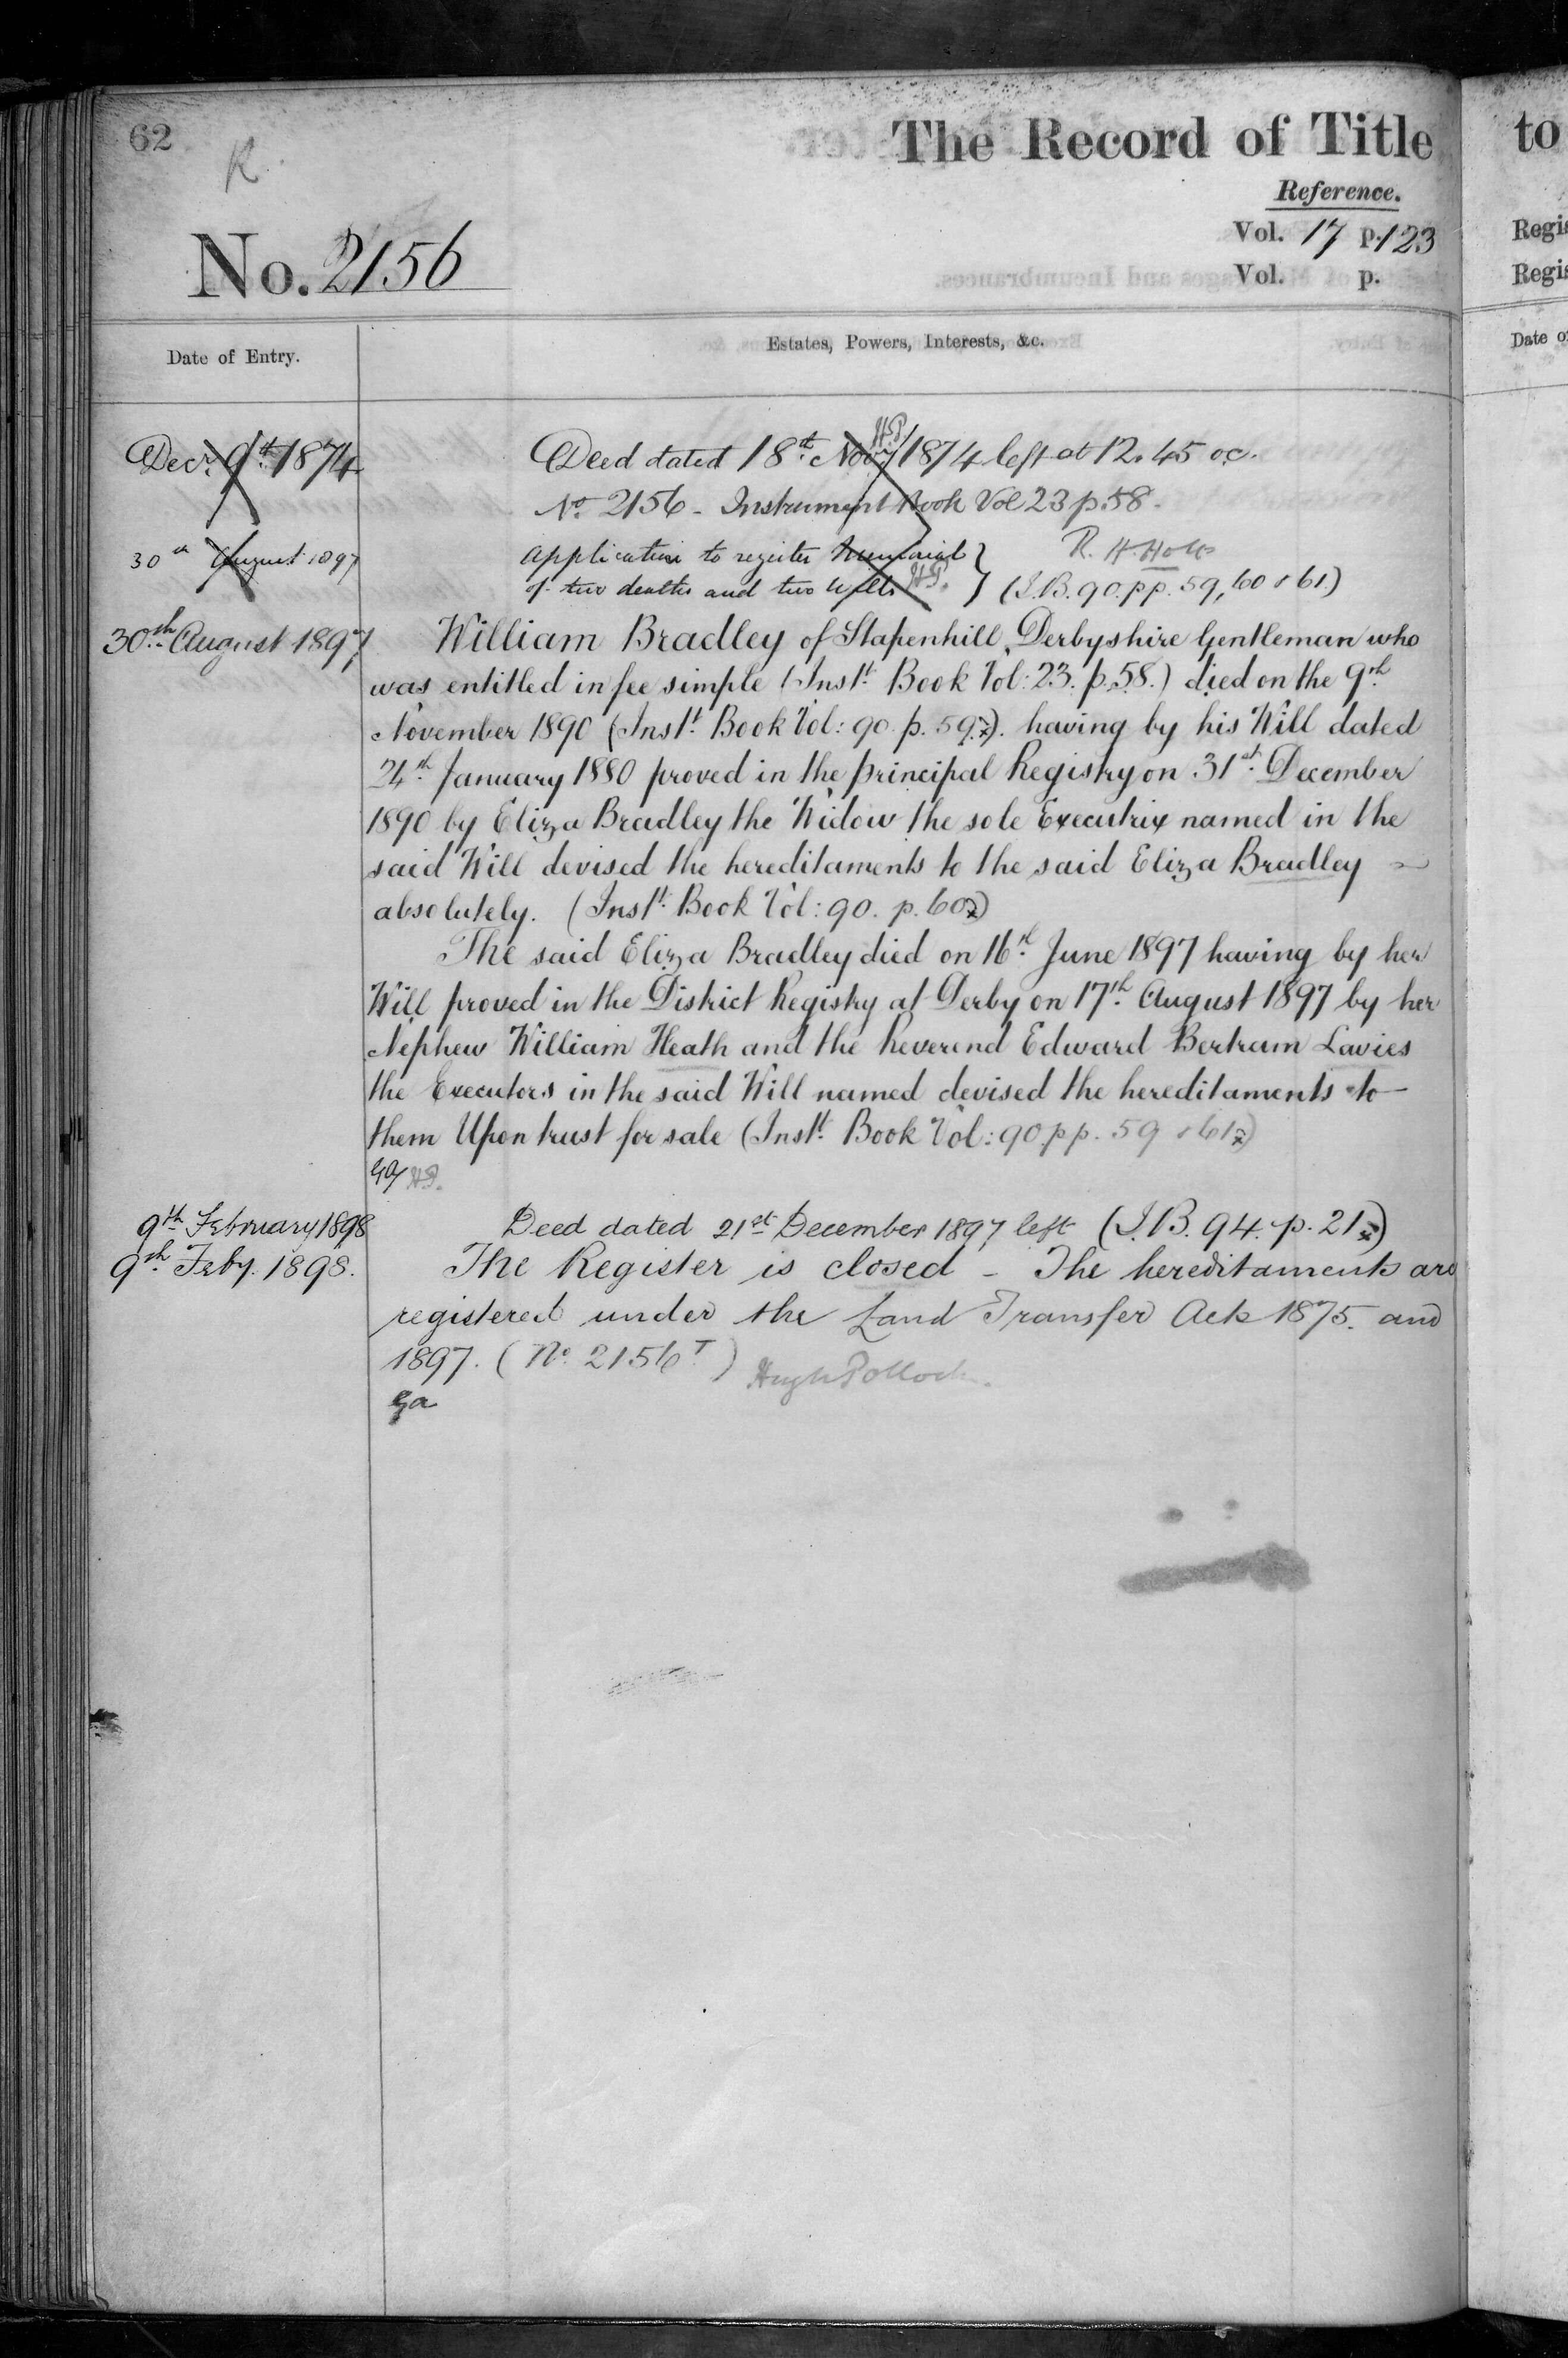 62
R.
The Record of Title
to
Reference.
Vol. 17 p. 123
Regis
No. 2156
Vol. p.
Regis
Date of Entry.
Estates, Powers, Interests, &c.
Date o
Decr. 9th 1874
Deed dated 18th Novr 1874 left at 12.45 oc.
H.P.
No. 2156 - Instrument Book Vol 23 p. 58.
30th August 1897
Application to register
R. H. Holt
of two deaths and two Wills H.P. } (I.B. 90. pp. 59, 60 & 61.)
30th August 1897
William Bradley of Stapenhill, Derbyshire Gentleman who
was entitled in fee simple (Instt. Book Vol: 23. p. 58.) died on the 9th
November 1890 (Instt. Book Vol: 90. p. 59.). having by his Will dated
24th January 1880 proved in the principal Registry on 31st December
1890 by Eliza Bradley the Widow the sole Executrix named in the
said Will devised the hereditaments to the said Eliza Bradley
absolutely. (Instt. Book Vol: 90. p. 60)
The said Eliza Bradley died on 16th June 1897 having by her
Will proved in the District Registry at Derby on 17th August 1897 by her
Nephew William Heath and the Reverend Edward Bertram Lavies
the Executors in the said Will named devised the hereditaments to
them Upon trust for sale (Instt. Book Vol: 90 pp. 59 & 61)
H.P.
9th February 1898
Deed dated 21st December 1897 left (I.B. 94. p. 21)
9th Feby. 1898.
The Register is closed - The hereditaments are
registered under the Land Transfer Acts 1875. and
1897. (No. 2156 T) Hugh Pollock.
Ga